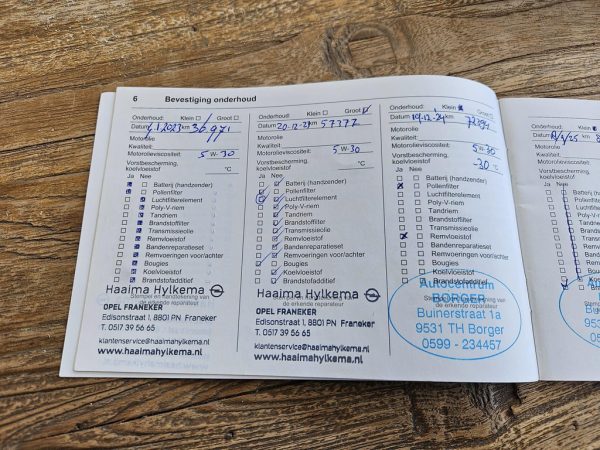 6 Bevestiging onderhoud
Onderhoud: Klein Groot
Datum 2023 km 36971
Motorolie
Kwaliteit:
Motorolieviscositeit: 5 W-30
Vorstbescherming,
koelvloeistof °C
Ja Nee
Batterij (handzender)
Pollenfilter
Luchtfilterelement
Poly-V-riem
Tandriem
Brandstoffilter
Transmissieolie
Remvloeistof
Bandenreparatieset
Remvoeringen voor/achter
Bougies
Koelvloeistof
Brandstofadditief
Haaima Hylkema
Stempel en handtekening van
de erkende reparateur
OPEL FRANEKER
Edisonstraat 1, 8801 PN Franeker
T. 0517 39 56 65
klantenservice@haaimahylkema.nl
www.haaimahylkema.nl
Onderhoud: Klein Groot
Datum 20-12-23 km 57377
Motorolie
Kwaliteit:
Motorolieviscositeit: 5 W-30
Vorstbescherming,
koelvloeistof °C
Ja Nee
Batterij (handzender)
Pollenfilter
Luchtfilterelement
Poly-V-riem
Tandriem
Brandstoffilter
Transmissieolie
Remvloeistof
Bandenreparatieset
Remvoeringen voor/achter
Bougies
Koelvloeistof
Brandstofadditief
Haaima Hylkema
Stempel en handtekening van
de erkende reparateur
OPEL FRANEKER
Edisonstraat 1, 8801 PN Franeker
T. 0517 39 56 65
klantenservice@haaimahylkema.nl
www.haaimahylkema.nl
Onderhoud: Klein Groot
Datum 10-12-24 km
Motorolie
Kwaliteit:
Motorolieviscositeit: 5 W-30
Vorstbescherming,
koelvloeistof -30 °C
Ja Nee
Batterij (handzender)
Pollenfilter
Luchtfilterelement
Poly-V-riem
Tandriem
Brandstoffilter
Transmissieolie
Remvloeistof
Bandenreparatieset
Remvoeringen voor/achter
Bougies
Koelvloeistof
Brandstofadditief
Autocentrum
BORGER
Buinerstraat 1a
9531 TH Borger
0599 - 234457
Onderhoud:
Datum
Motorolie
Kwaliteit:
Motorolieviscositeit
Vorstbescherming,
koelvloeistof
Ja Nee